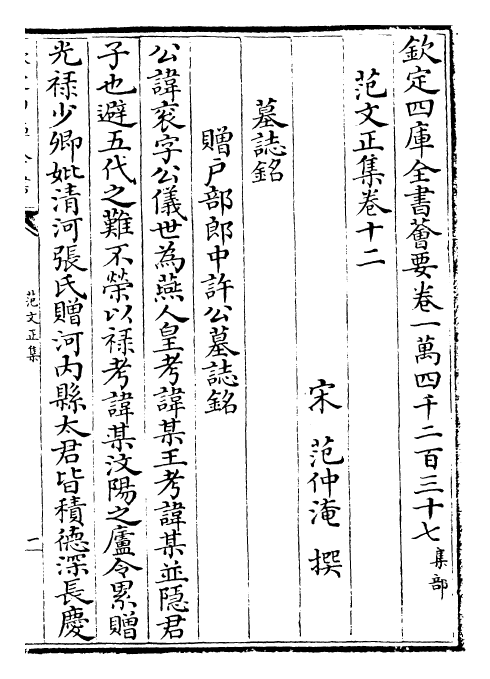 欽定四庫全書薈要卷一萬四千二百三十七集部
范文正集卷十二
宋 范仲淹 撰
墓誌銘
贈户部郎中許公墓誌銘
公諱衮字公儀世為燕人皇考諱某王考諱某並隱君
子也避五代之難不榮以禄考諱某汶陽之廬令累贈
光禄少卿妣清河張氏贈河内縣太君皆積德深長慶
范文正集
一